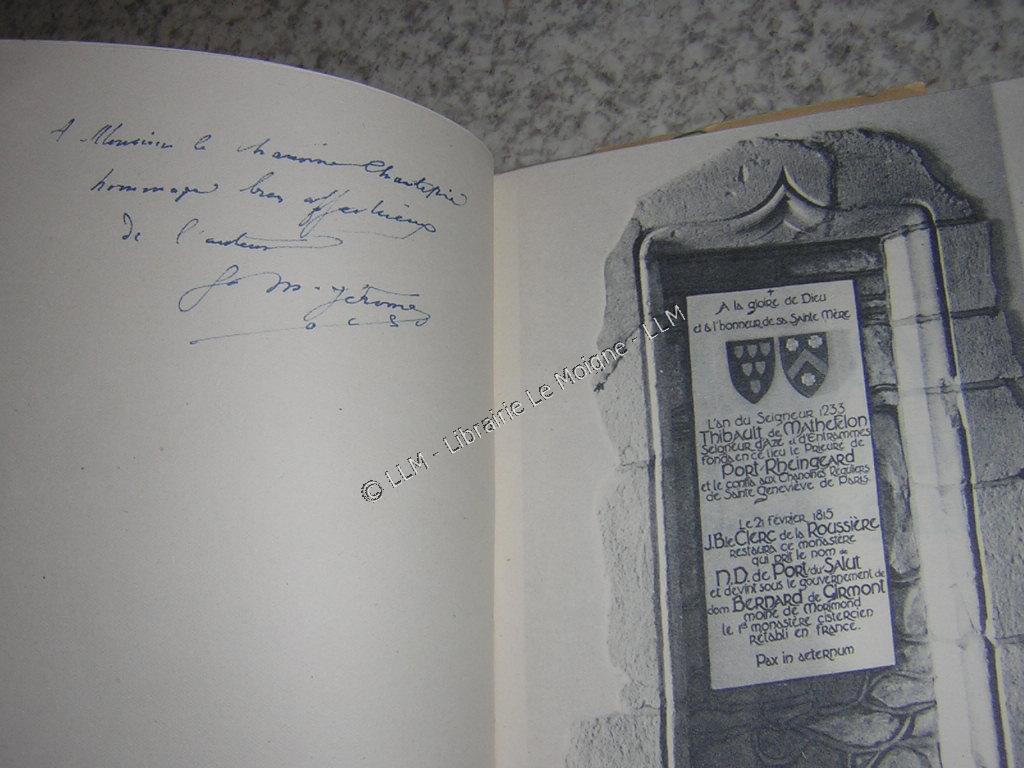 A Monsieur le chanoine Chantepie
hommage bien affectueux
de l'auteur
fr M-Jérôme
o c s o
A la gloire de Dieu
et à l'honneur de sa Sainte Mère
L'an du Seigneur 1233
Thibault de Mathefelon
Seigneur d'Azé et d'Entrammes
fonda en ce lieu le Prieuré de
Port-Rheingeard
et le confia aux Chanoines Réguliers
de Sainte Geneviève de Paris.
Le 21 février 1815
J.B. le Clerc de la Roussière
restaura ce monastère
qui prit le nom de
N.D. de Port-du-Salut
et devint sous le gouvernement de
dom Bernard de Girmont
moine de Morimond
le 1er monastère cistercien
rétabli en France.
Pax in aeternum
© LLM - Librairie Le Moigne - LLM